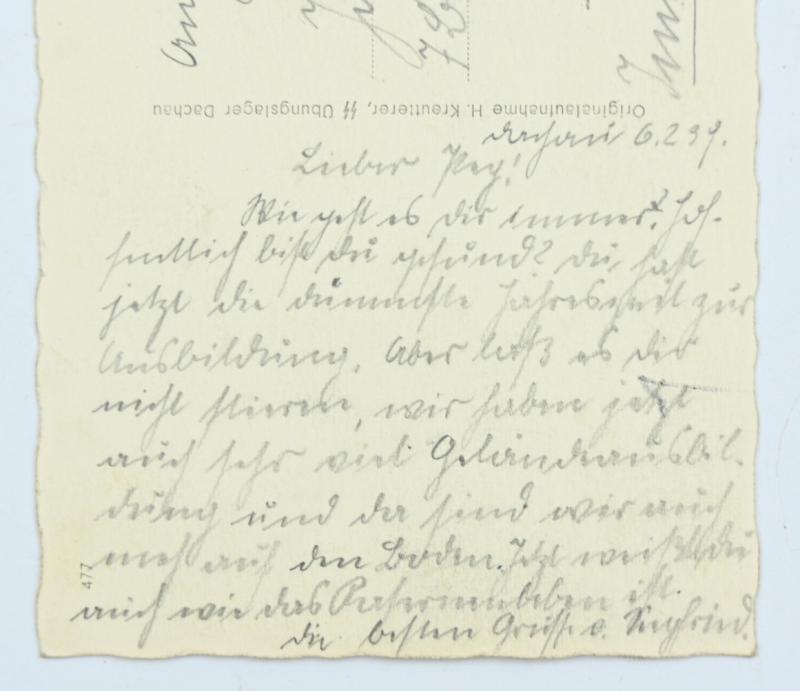 Originalaufnahme H. Kreutterer, SS Übungslager Dachau
Dachau 6.2.39.
Lieber
Wie geht es dir immer? Hof-
fentlich bist du gesund? Du hast
jetzt die dümmste Jahreszeit zur
Ausbildung. Aber laß es dir
nicht, wir haben jetzt
auch sehr viel Geländeausbil-
dung und da sind wir auch
auf den Boden. Jetzt weißt du
auch wie das Kasernenleben ist.
die besten Grüsse v. Siegfried.
477